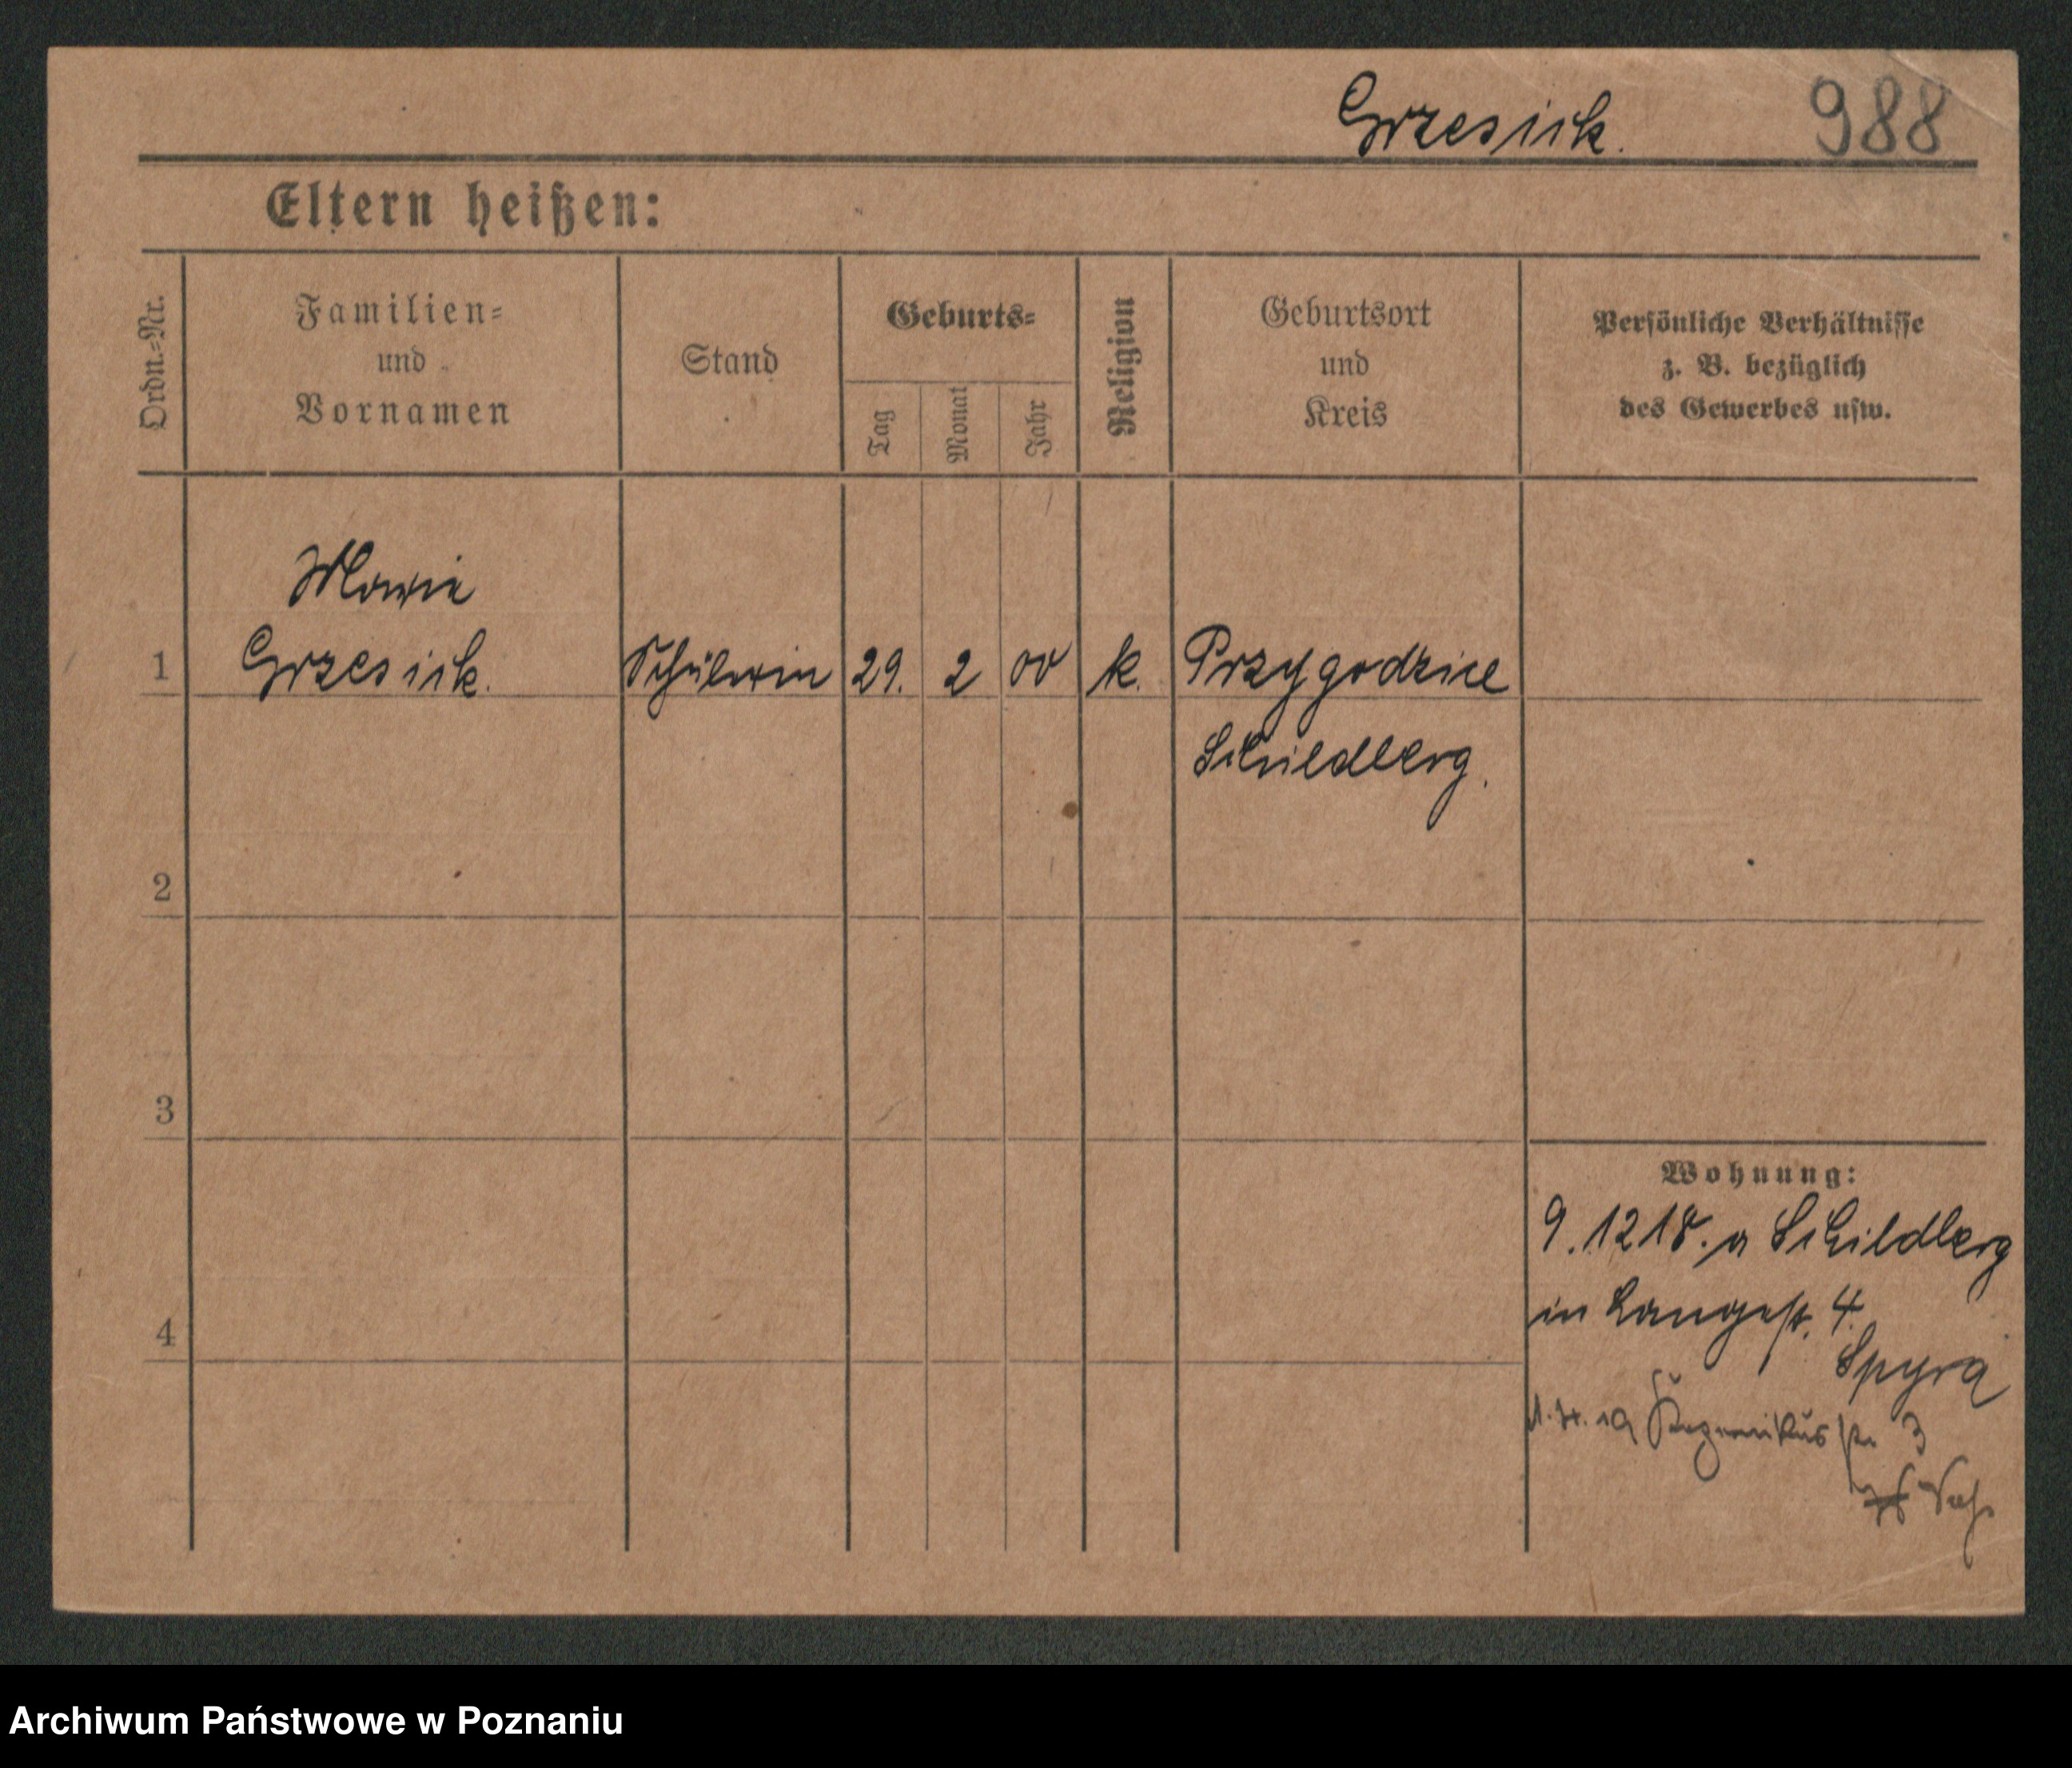 Grzesiek. 988
Eltern heißen:
Ordn.-Nr.
Familien-
und
Vornamen
Stand
Geburts-
Tag
Monat
Jahr
Religion
Geburtsort
und
Kreis
Persönliche Verhältnisse
z. B. bezüglich
des Gewerbes usw.
Maria
1 Grzesiek. Schülerin 29. 2 00 k. Przygodzice
Schildberg.
2
3
Wohnung:
9.1218. a Schildberg
in Langestr. 4.
4
Spyra
19 str 3
Archiwum Państwowe w Poznaniu